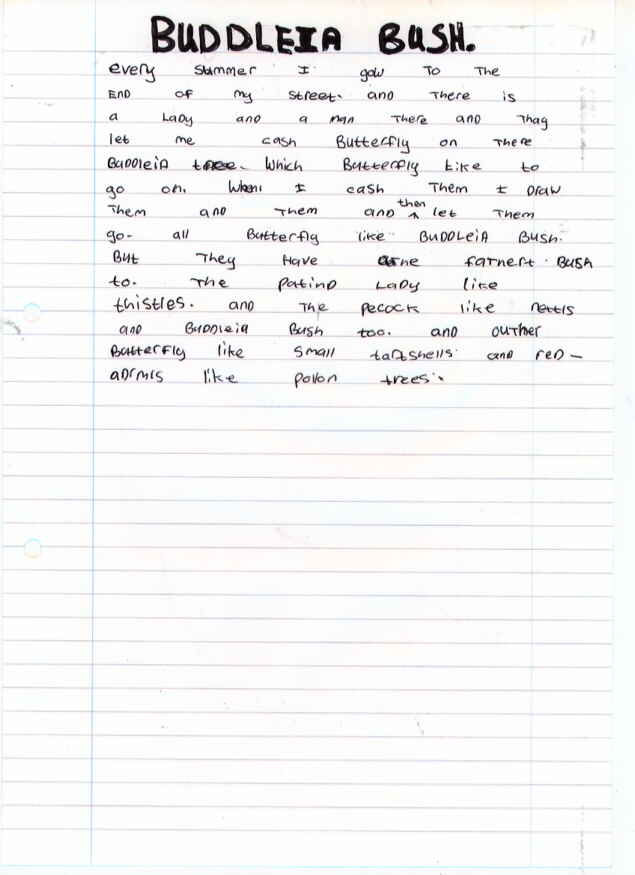 BUDDLEIA BUSH.
every summer I gow to the
END OF my street. and There is
a Lady and a man there and Thay
let me cash Butterfly on There
BuddleiA tree. Which Butterfly Like to
go on. When I cash Them I Draw
Them and Them and then let Them
go. all Butterfly like BUDDLEiA Bush.
But They Have ane farnert. Bush
to. The patind Lady like
thistles. and The pecock like nettls
and Buddleia Bush too. and outher
Butterfly like small tartshells. and red-
admrls like povon trees.